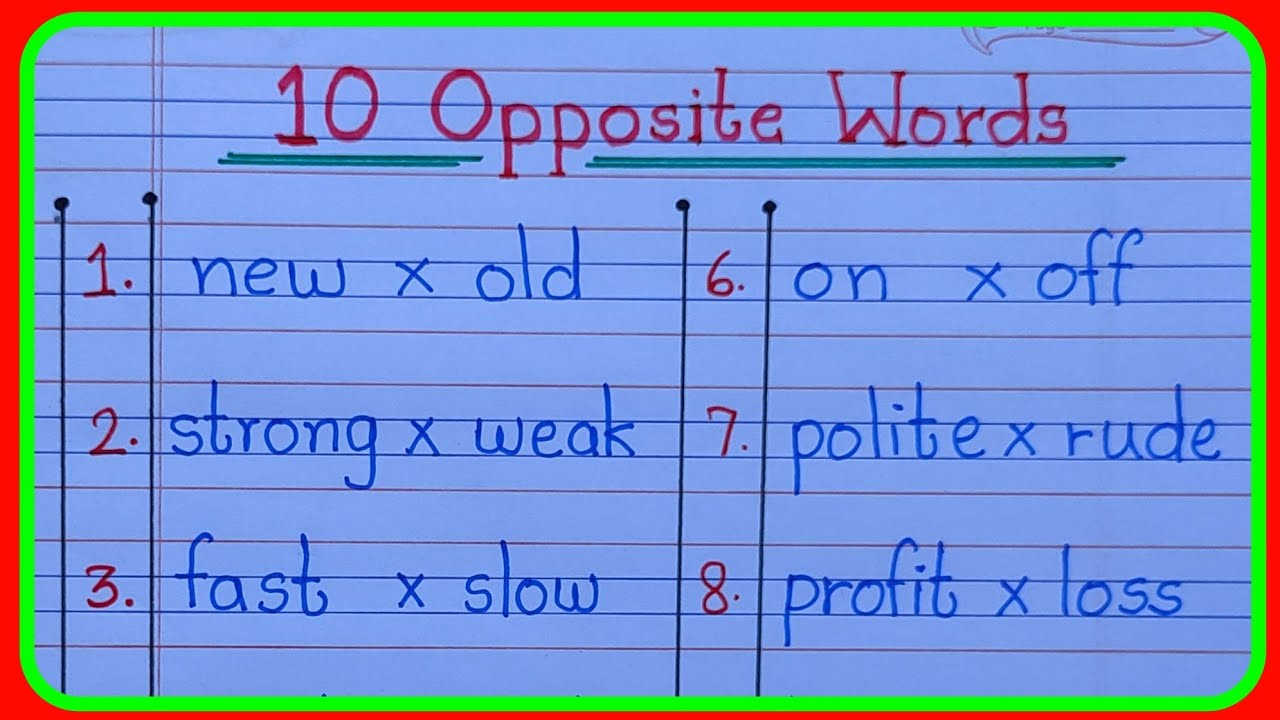 10 Opposite Words
1. new x old
2. strong x weak
3. fast x slow
6. on x off
7. polite x rude
8. profit x loss